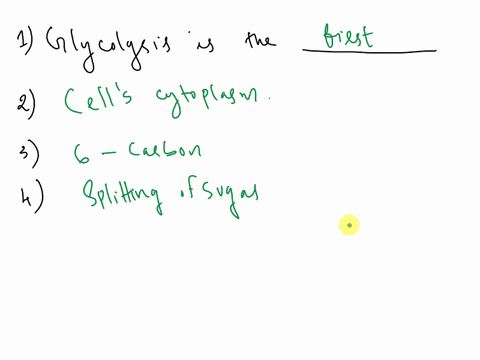 1) Glycolysis is the first
2) Cell's cytoplasm.
3) 6 - Carbon
4) Splitting of Sugar